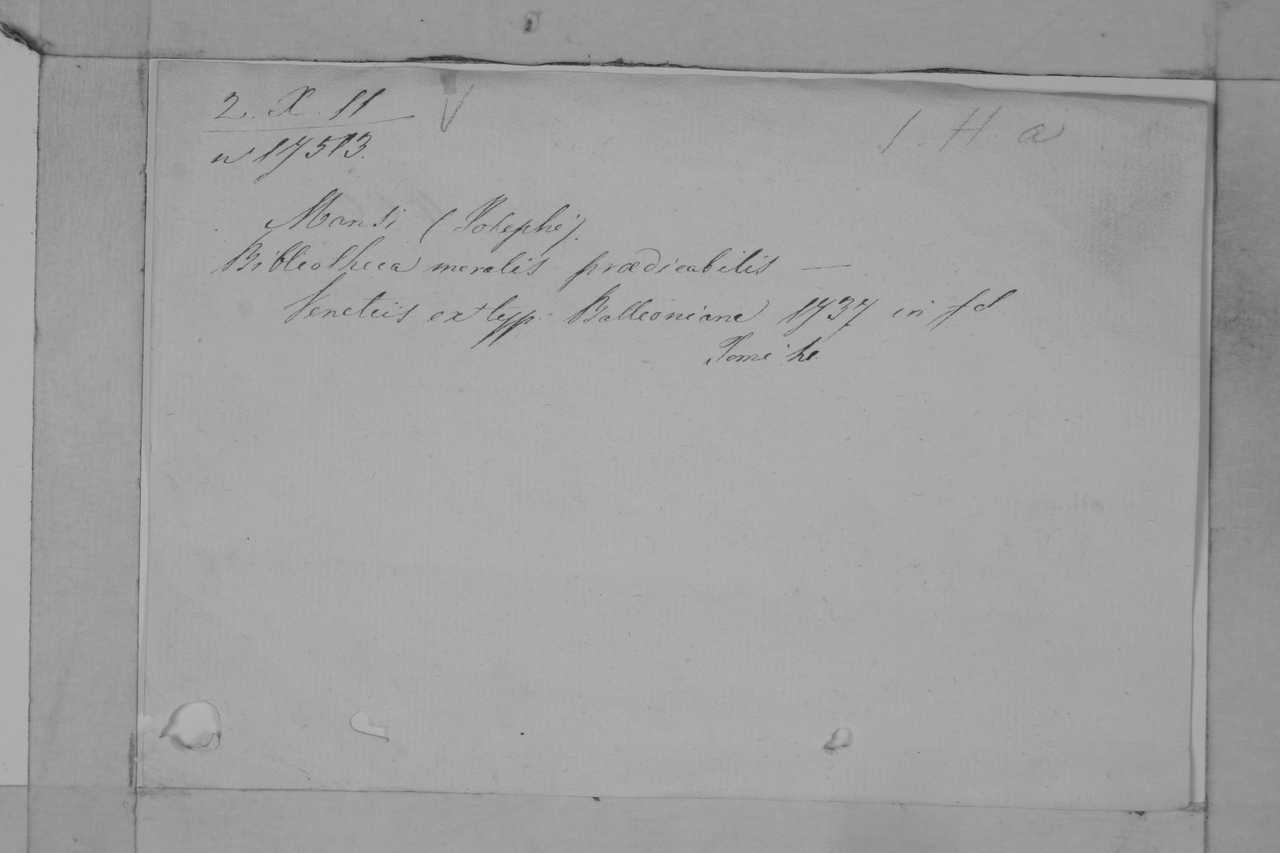 2. X. 11
V
1. H a
nº 17513.
Mansi (Josephi).
Bibliotheca moralis prædicabilis —
Venetiis ex typ. Balleoniana 1737 in fol
Tomi